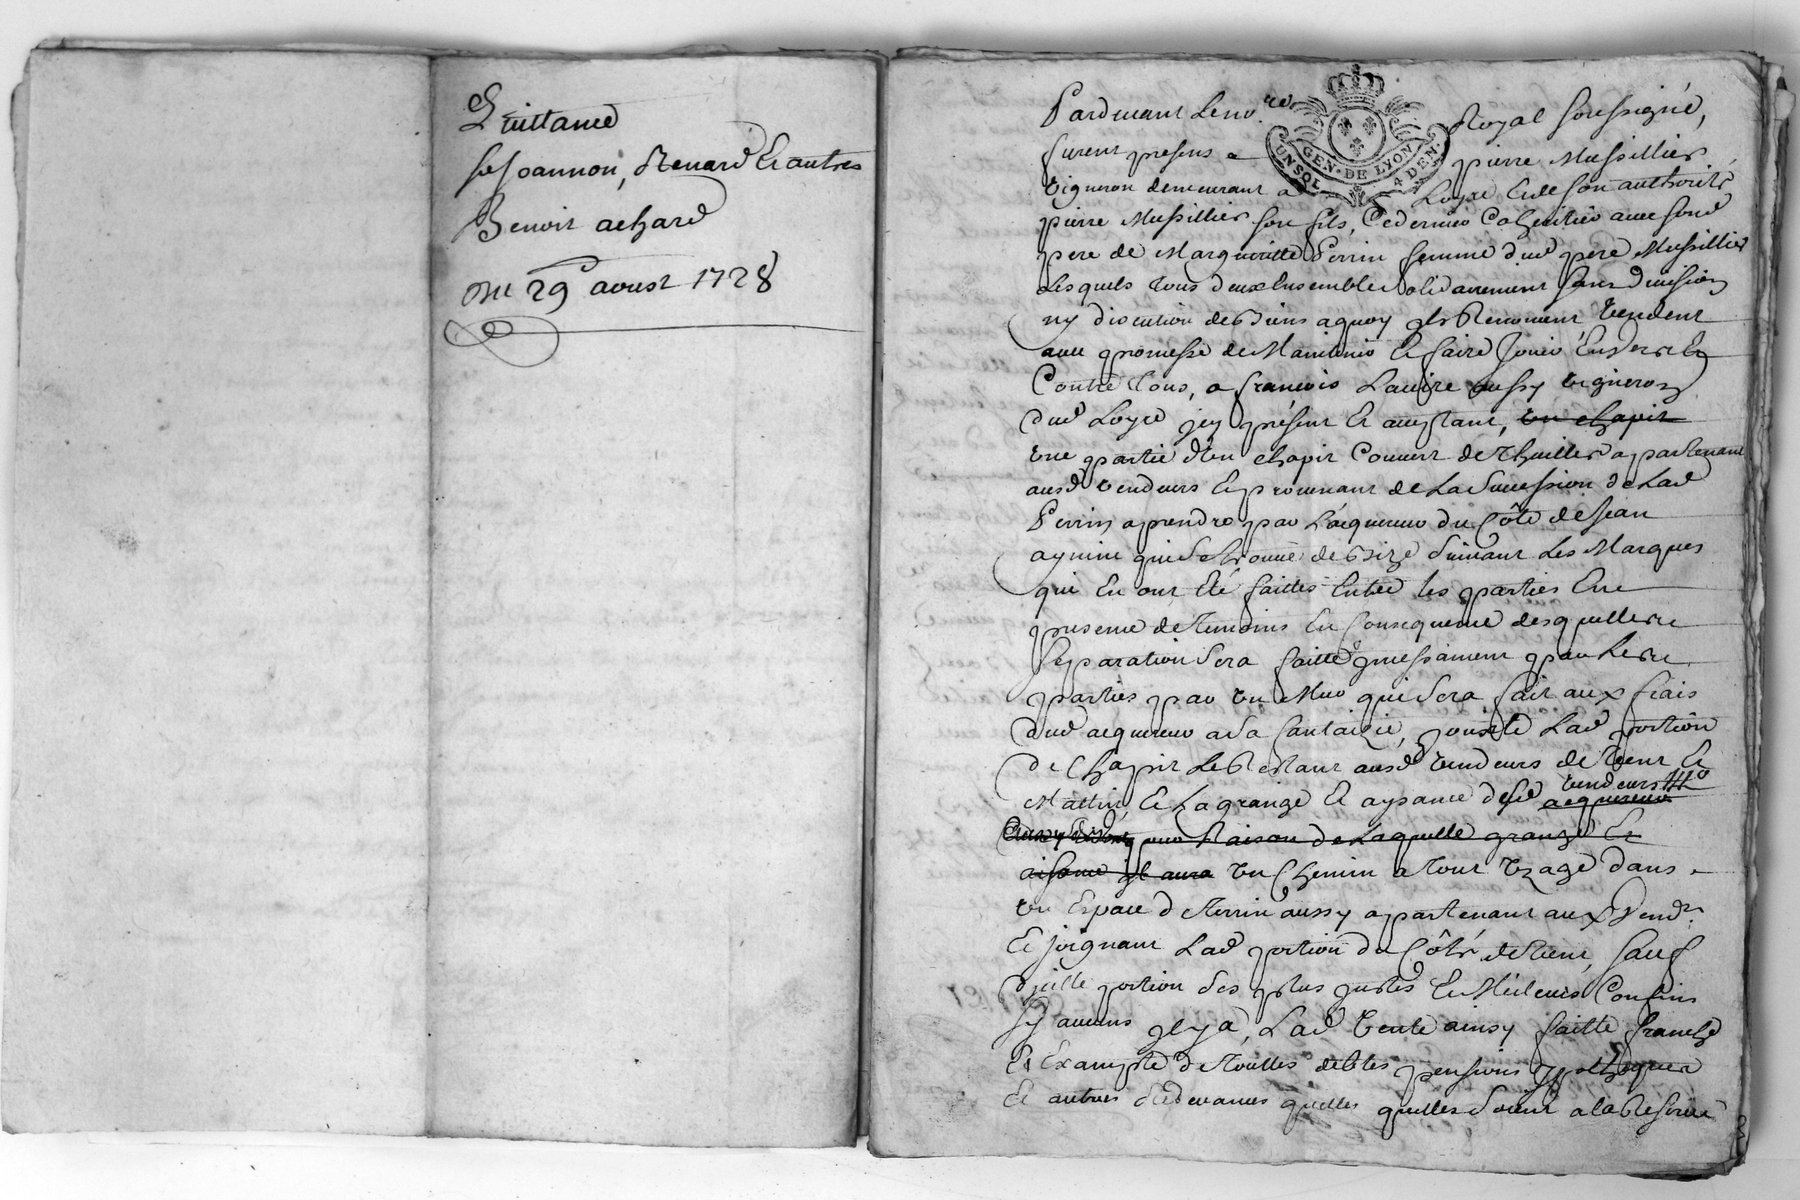 Quittance
srs Joannon, Renard Et autres
Benoit achard
Du 29 aoust 1728
Pardevant Le no.re Royal soussigné,
GEN. DE LYON
UN SOL 4 DEN.
furent presens pierre Mussillier
vigneron demeurant a Loyre Et de son authorité
pierre Mussillier son fils, Ce dernier Coheritier avec sond
pere de Margueritte Perrin femme dud pere Mussillier
Lesquels tous deux Ensemble solidairement sans division
ny discution de biens a quoy ils Renoncent, vendent
avec promesse de Maintenir Et faire Jouir Envers Et
Contre tous, a francois Lavire aussy vigneron
dud Loyre icy présent Et acceptant, un chapit
une partie d'un chapit Couvert de thuilles appartenant
ausd vendeurs Et provenant de La Succession de Lad
Perrin, a prendre par L'acquereur du Côté de Jean
qui se trouve de bize suivant Les Marques
qui En ont Eté faittes Entre les parties En
presence de temoins En Consequence desquelles
separation sera faitte par Les
parties par un Mur qui sera fait aux frais
dud acquereur a sa fantaizie, jouxte Lad portion
de Chapit Le Restant ausd vendeurs de vent Et
Matin, Et La grange Et aysance desd acquereur vendeurs
pour Raison de Laquelle grange Et
aisance il aura un Chemin a tout uzage dans
un Espace de terrin aussy appartenant aux Vend.rs
Et joignant Lad portion du Côté de vent, sauf
d'icelle portion ses plus justes Et Meilleurs Confins
sy aucuns il y a, Lad vente ainsy faitte franche
Et Exempte de touttes debtes pensions hypotheques
Et autres Redevances quelles quelles soient a la Reserve